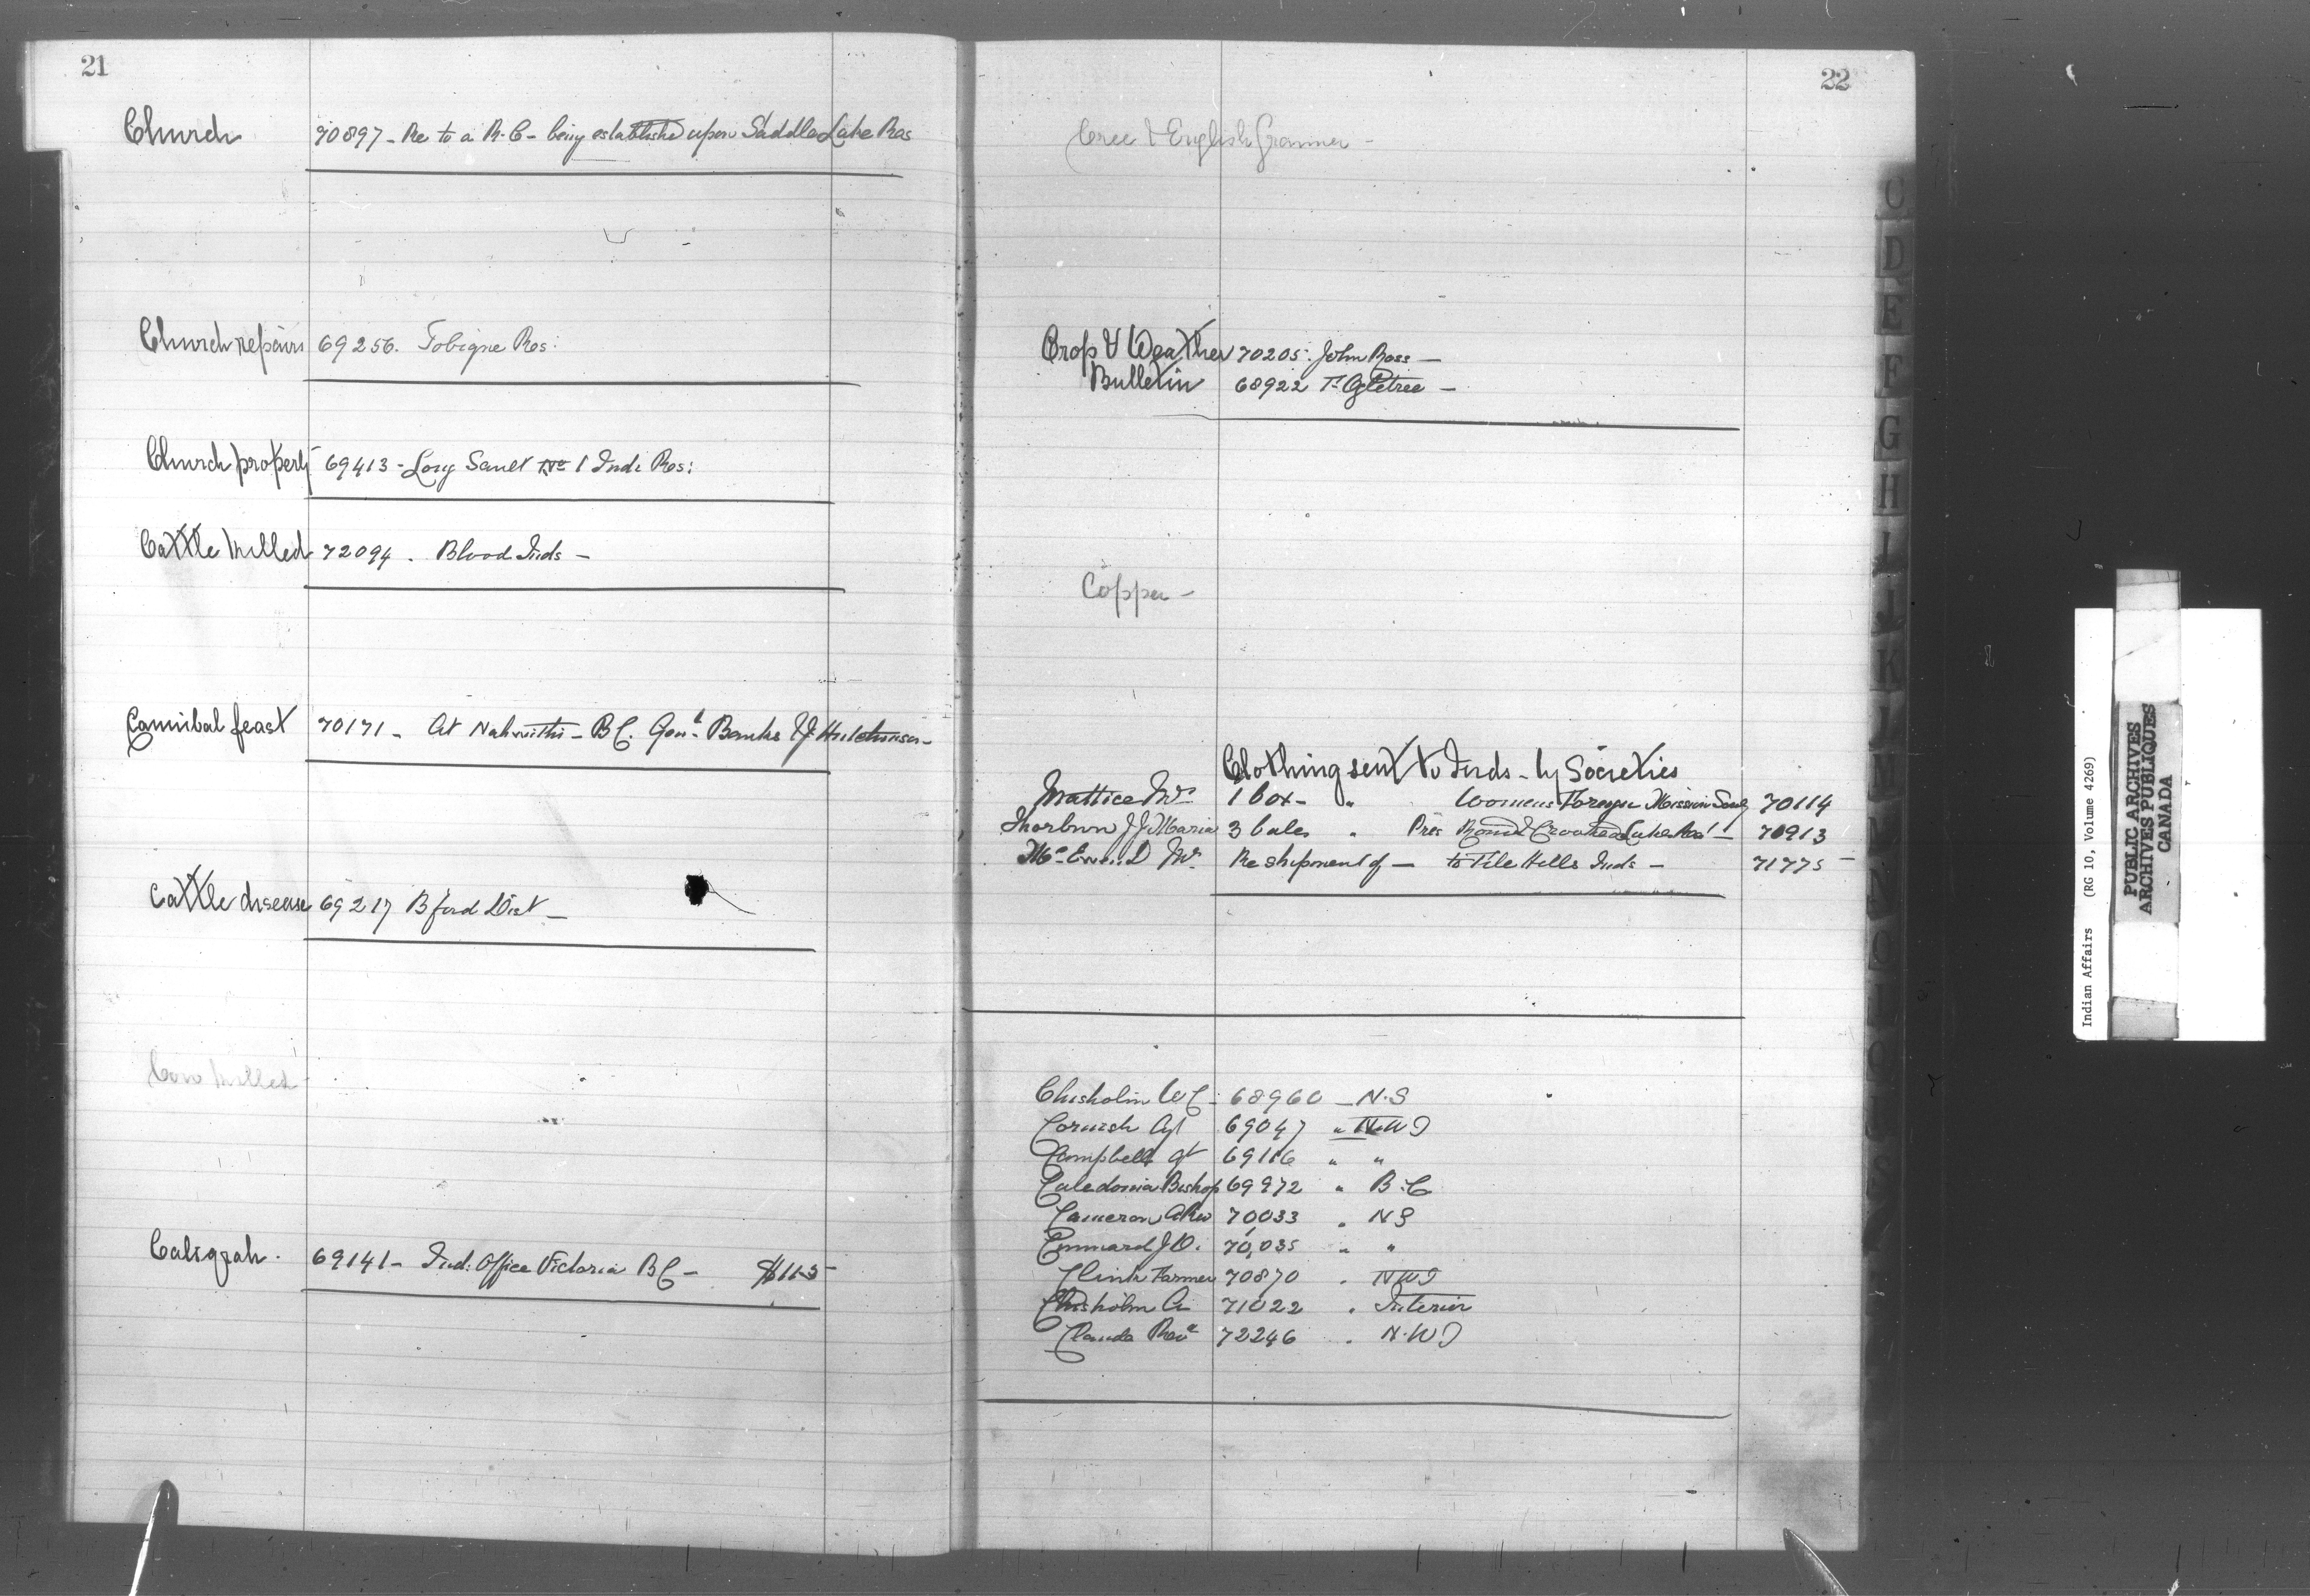 21
Church 70897 - Re to a R.C - being established upon Saddle Lake Res
Church repairs 69256. Tobique Res:
Church property 69413 - Long Sault No 1 Ind: Res:
Cattle killed 72094 . Blood Inds -
Cannibal feast 70171 - At - B.C. Banks & J Hutchinson -
Cattle disease 69217 Bford Dist -
Cow killed
Caligraph . 69141 - Ind: Office Victoria BC - $115
22
Cree & English Grammer -
Crop & Weather 70205. John Ross -
Bulletin 68922 -
Copper -
Clothing sent to Inds - by Societies
Mattice Mrs 1 box - " Womens Foreign Mission Socy 70114
Thorburn J J Maria 3 bales " Pres Round & Crooked Lake 70913
McEwen D Mrs Re shipment of - to File Hills Inds - 71775
Chisholm W C - 68960 - N.S
Cornish Agt 69047 " N.W T
Campbell Agt 69116 " "
Caledonia Bishop 69972 " B.C
Cameron A Rev 70033 " N S
J D. 70,035 " "
Cline Farmer 70870 " N W T
Chisholm A 71022 " Interior
Claude Revd 72246 " N.W T
C
D
E
F
G
H
I
J
K
PUBLIC ARCHIVES
ARCHIVES PUBLIQUES
CANADA
Indian Affairs (RG 10, Volume 4269)